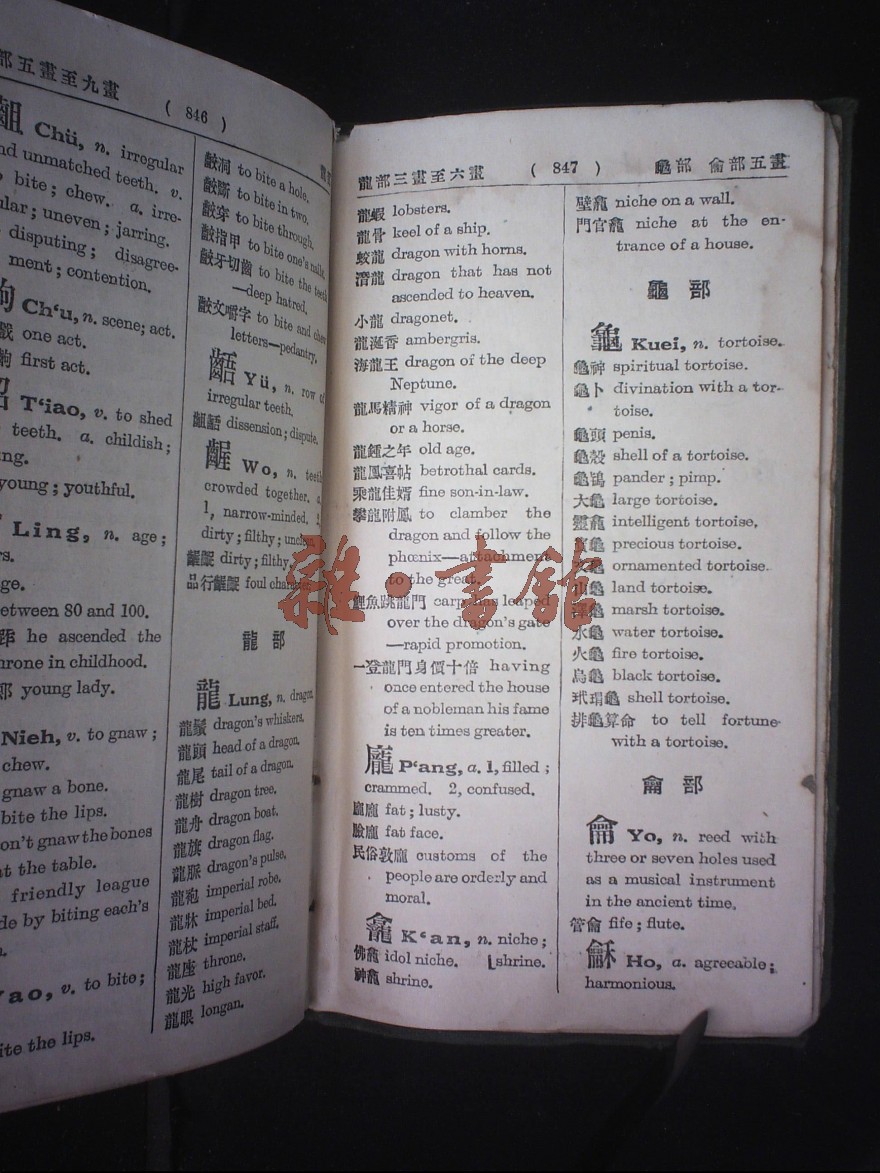 部五畫至九畫
( 846 )
齟 Chü, n. irregular
and unmatched teeth. v.
bite; chew. a. irre-
lar; uneven; jarring.
disputing; disagree-
ment; contention.
齣 Ch‘u, n. scene; act.
one act.
first act.
齠 T‘iao, v. to shed
teeth. a. childish;
ng.
young; youthful.
Ling, n. age;
rs.
ge.
between 80 and 100.
he ascended the
throne in childhood.
young lady.
Nieh, v. to gnaw;
chew.
gnaw a bone.
bite the lips.
on't gnaw the bones
at the table.
friendly league
de by biting each's
Yao, v. to bite;
ite the lips.
齩洞 to bite a hole.
齩斷 to bite in two.
齩穿 to bite through.
齩指甲 to bite one's nails.
齩牙切齒 to bite the teeth
—deep hatred.
齩文嚼字 to bite and chew
letters—pedantry.
齬 Yü, n. row of
irregular teeth.
齟齬 dissension; dispute.
齷 Wo, n. teeth
crowded together. a.
1, narrow-minded. 2,
dirty; filthy; unclean.
齷齪 dirty; filthy.
品行齷齪 foul character.
龍部
龍 Lung, n. dragon.
龍鬚 dragon's whiskers.
龍頭 head of a dragon.
龍尾 tail of a dragon.
龍樹 dragon tree.
龍舟 dragon boat.
龍旗 dragon flag.
龍脈 dragon's pulse.
龍袍 imperial robe.
龍牀 imperial bed.
龍杖 imperial staff.
龍座 throne.
龍光 high favor.
龍眼 longan.
龍部三畫至六畫 ( 847 ) 龜部 龠部五畫
龍蝦 lobsters.
龍骨 keel of a ship.
蛟龍 dragon with horns.
潛龍 dragon that has not
ascended to heaven.
小龍 dragonet.
龍涎香 ambergris.
海龍王 dragon of the deep
Neptune.
龍馬精神 vigor of a dragon
or a horse.
龍鍾之年 old age.
龍鳳喜帖 betrothal cards.
乘龍佳婿 fine son-in-law.
攀龍附鳳 to clamber the
dragon and follow the
phœnix—attachment
to the great.
鯉魚跳龍門 carp has leaped
over the dragon's gate
—rapid promotion.
一登龍門身價十倍 having
once entered the house
of a nobleman his fame
is ten times greater.
龐 P‘ang, a. 1, filled;
crammed. 2, confused.
龐 fat; lusty.
臉龐 fat face.
民俗敦龐 customs of the
people are orderly and
moral.
龕 K‘an, n. niche;
佛龕 idol niche. [shrine.
神龕 shrine.
壁龕 niche on a wall.
門官龕 niche at the en-
trance of a house.
龜部
龜 Kuei, n. tortoise.
龜神 spiritual tortoise.
龜卜 divination with a tor-
toise.
龜頭 penis.
龜殼 shell of a tortoise.
龜鴇 pander; pimp.
大龜 large tortoise.
靈龜 intelligent tortoise.
寶龜 precious tortoise.
文龜 ornamented tortoise.
山龜 land tortoise.
澤龜 marsh tortoise.
水龜 water tortoise.
火龜 fire tortoise.
烏龜 black tortoise.
玳瑁龜 shell tortoise.
排龜算命 to tell fortune
with a tortoise.
龠部
龠 Yo, n. reed with
three or seven holes used
as a musical instrument
in the ancient time.
管龠 fife; flute.
龢 Ho, a. agreeable;
harmonious.
雜·書館